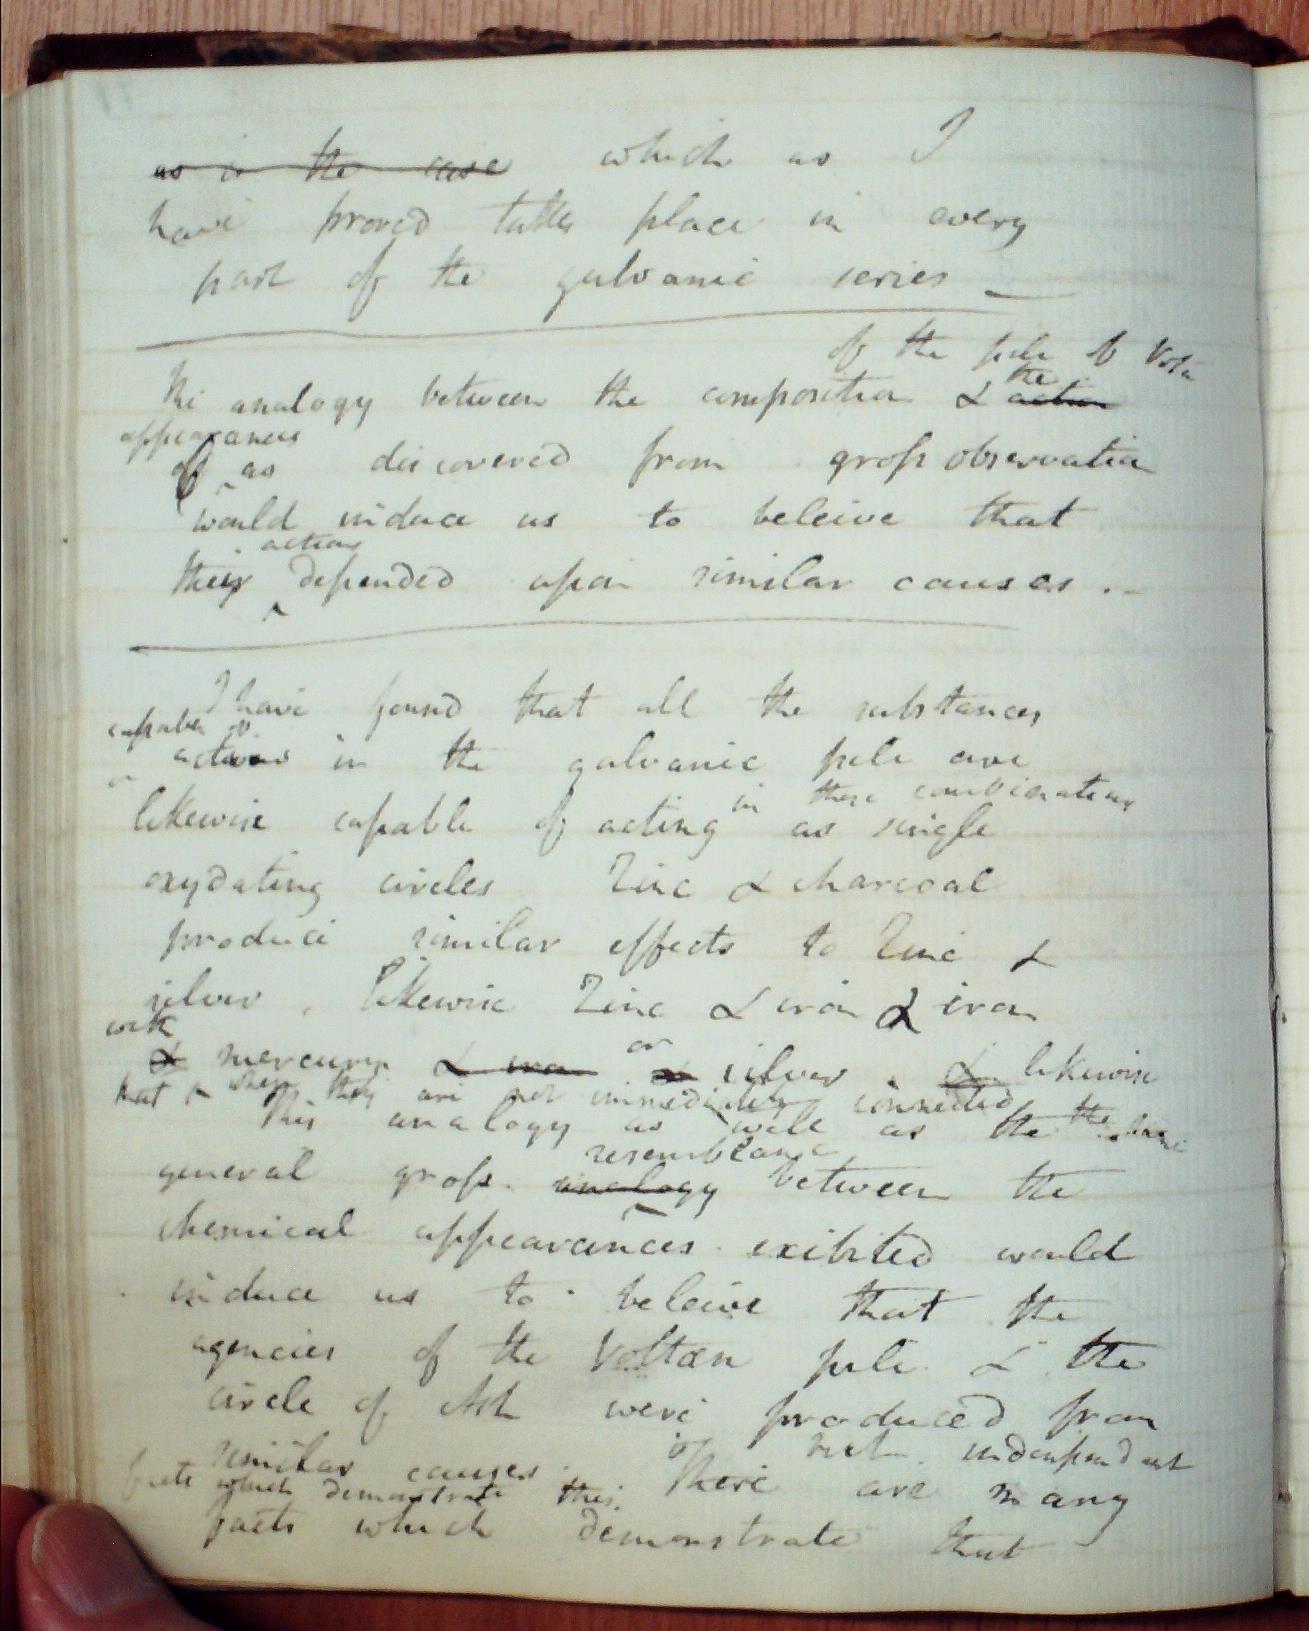 as is the case which as I
have proved takes place in every
part of the galvanic series
of the pile of Volta
the
The analogy between the composition & action
appearances
of as discovered from gross observation
would induce us to beleive that
action
their depended upon similar causes .
I have found that all the substances
capable of
action in the galvanic pile are
in these combinations
likewise capable of acting as single
oxydating circles Zinc & charcoal
produce similar effects to Zinc &
silver , likewise Zinc & iron & iron
with or
& mercury & iron & silver . & likewise
that when they are not immediately connected
This analogy as well as the the
resemblance
general gross analogy between the
chemical appearances exibited would
induce us to beleive that the
agencies of the Voltæn pile & the
circle of Ash were produced from
if not independent
similar causes . There are many
facts which demonstrate this
facts which demonstrate that